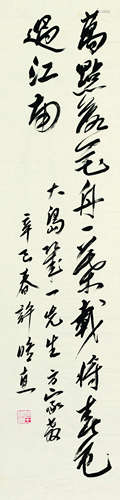 萬點落花舟一葉載將春色
過江南
大島龍一先生方家教
辛巳春許晴直